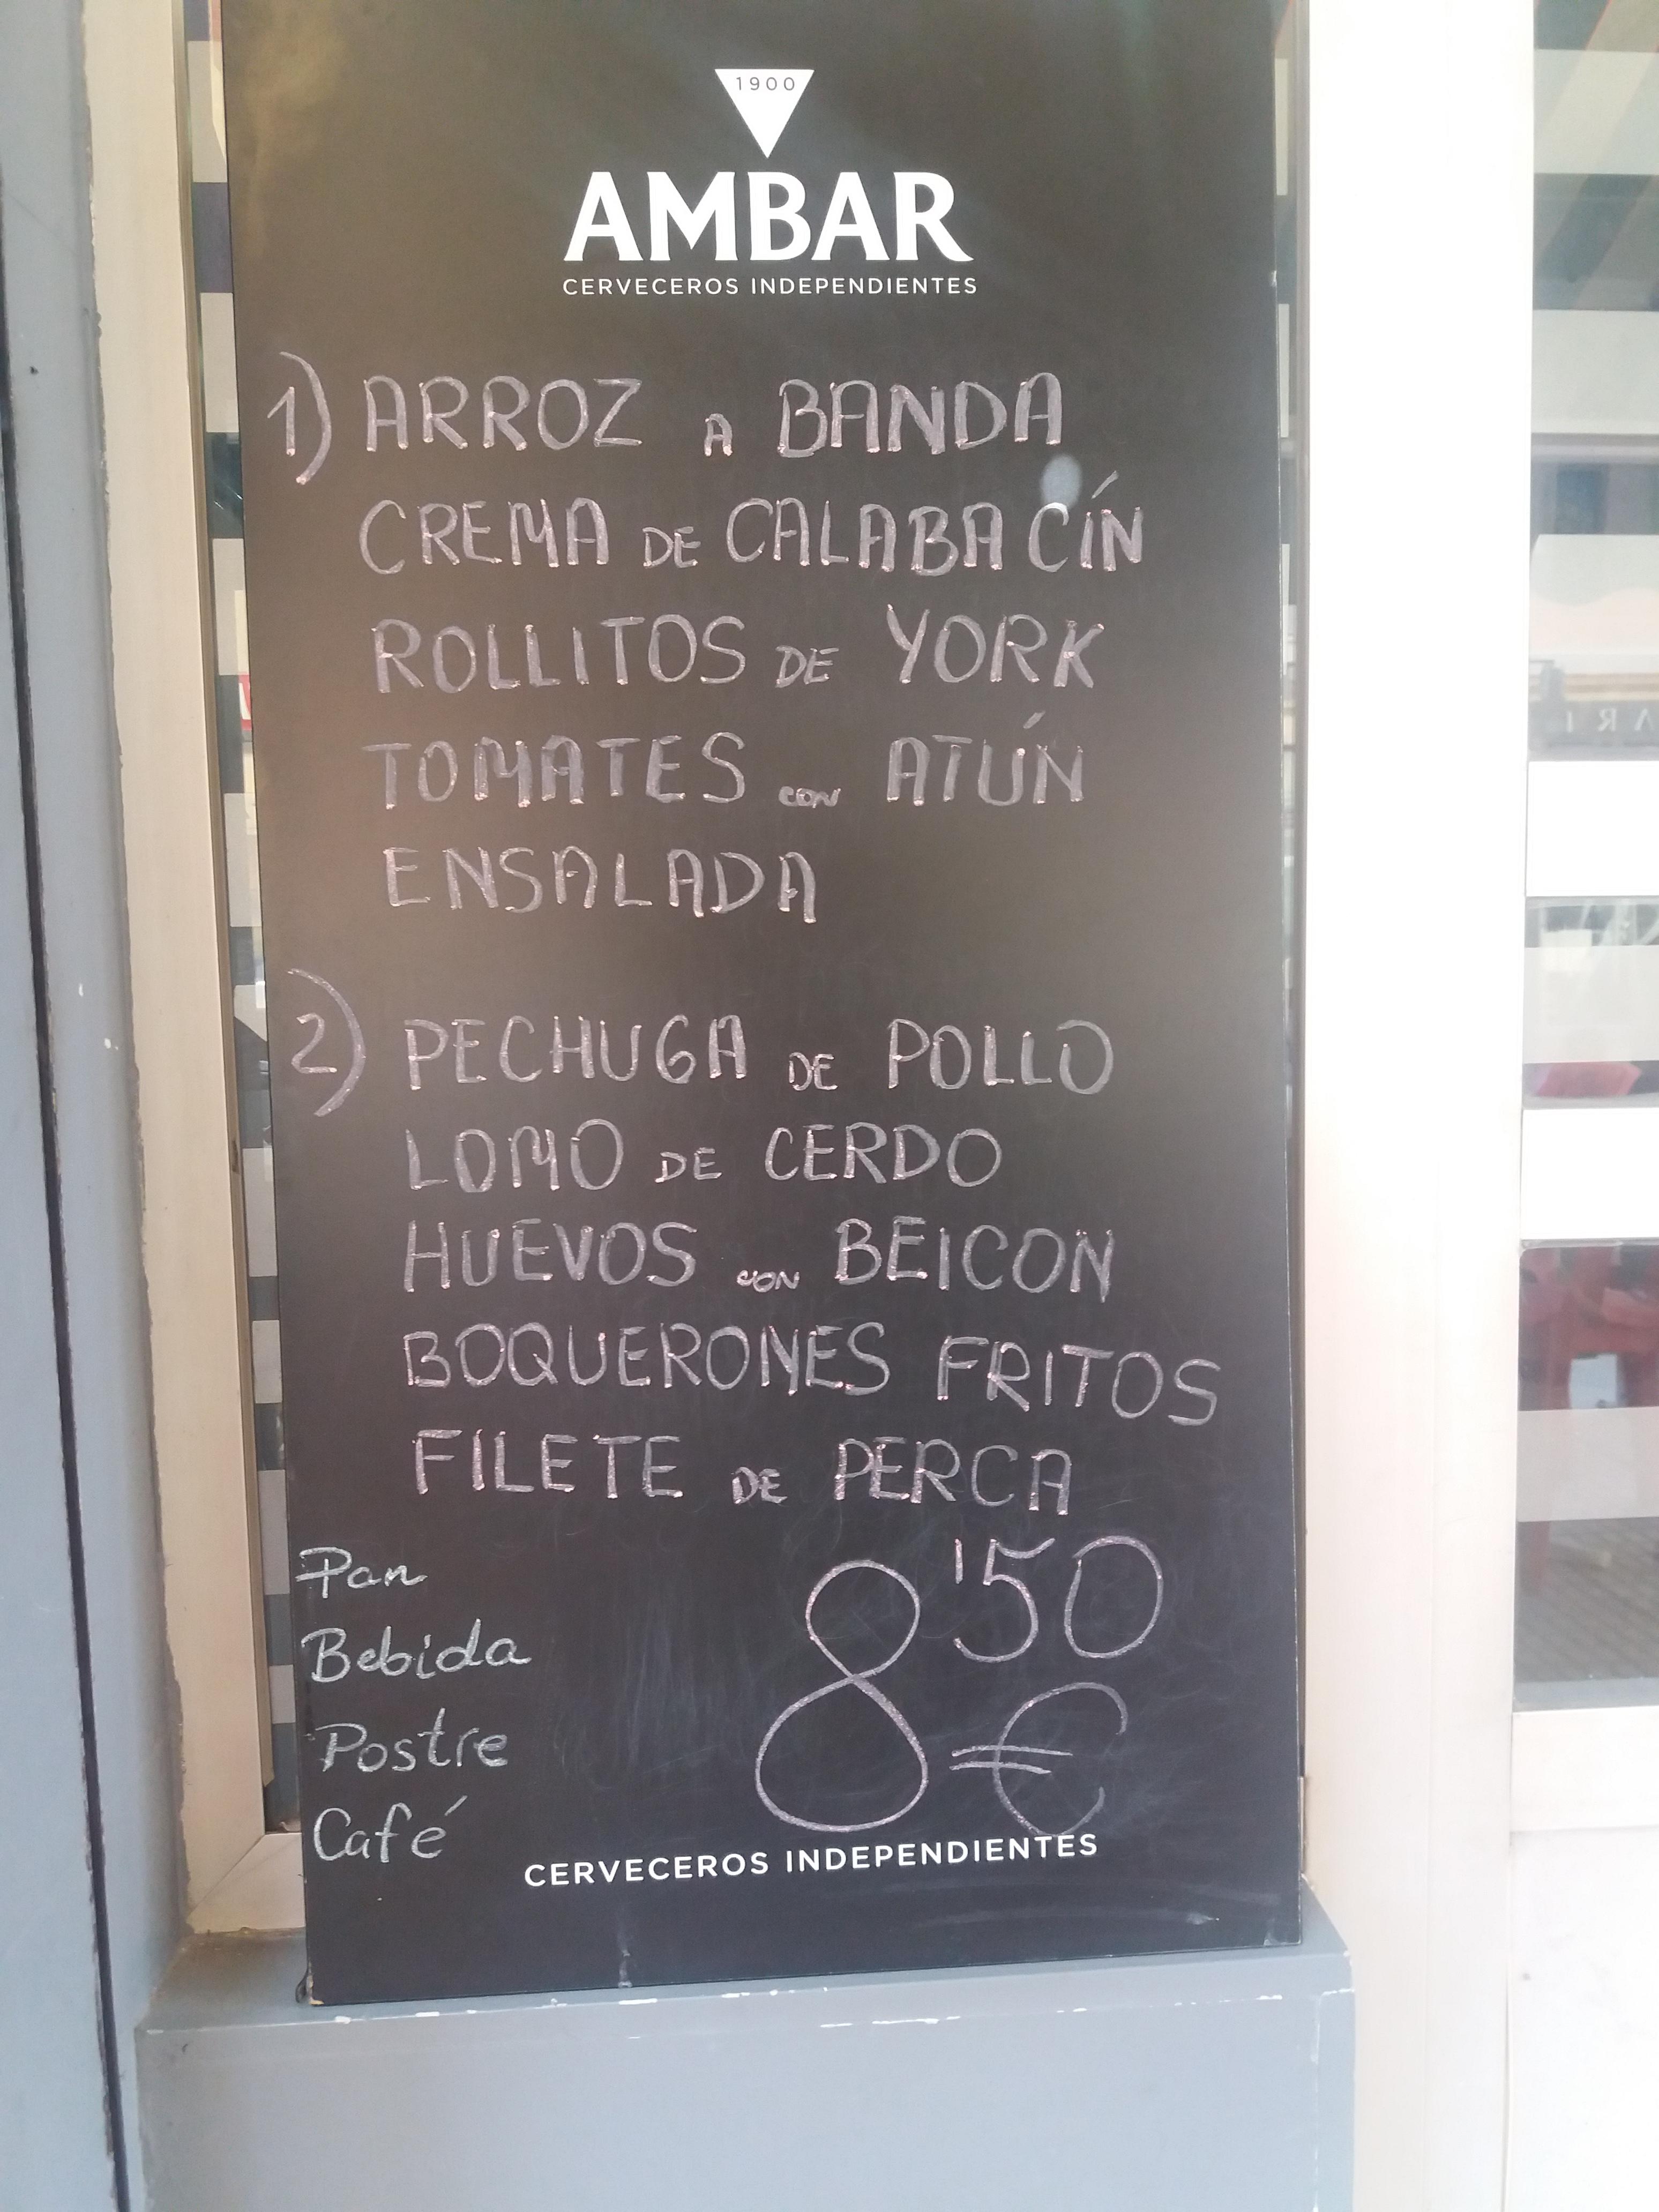 1900
AMBAR
CERVECEROS INDEPENDIENTES
1) ARROZ A BANDA
CREMA DE CALABACÍN
ROLLITOS DE YORK
TOMATES CON ATÚN
ENSALADA
2) PECHUGA DE POLLO
LOMO DE CERDO
HUEVOS CON BEICON
BOQUERONES FRITOS
FILETE DE PERCA
Pan
Bebida
Postre
Café
8'50
€
CERVECEROS INDEPENDIENTES